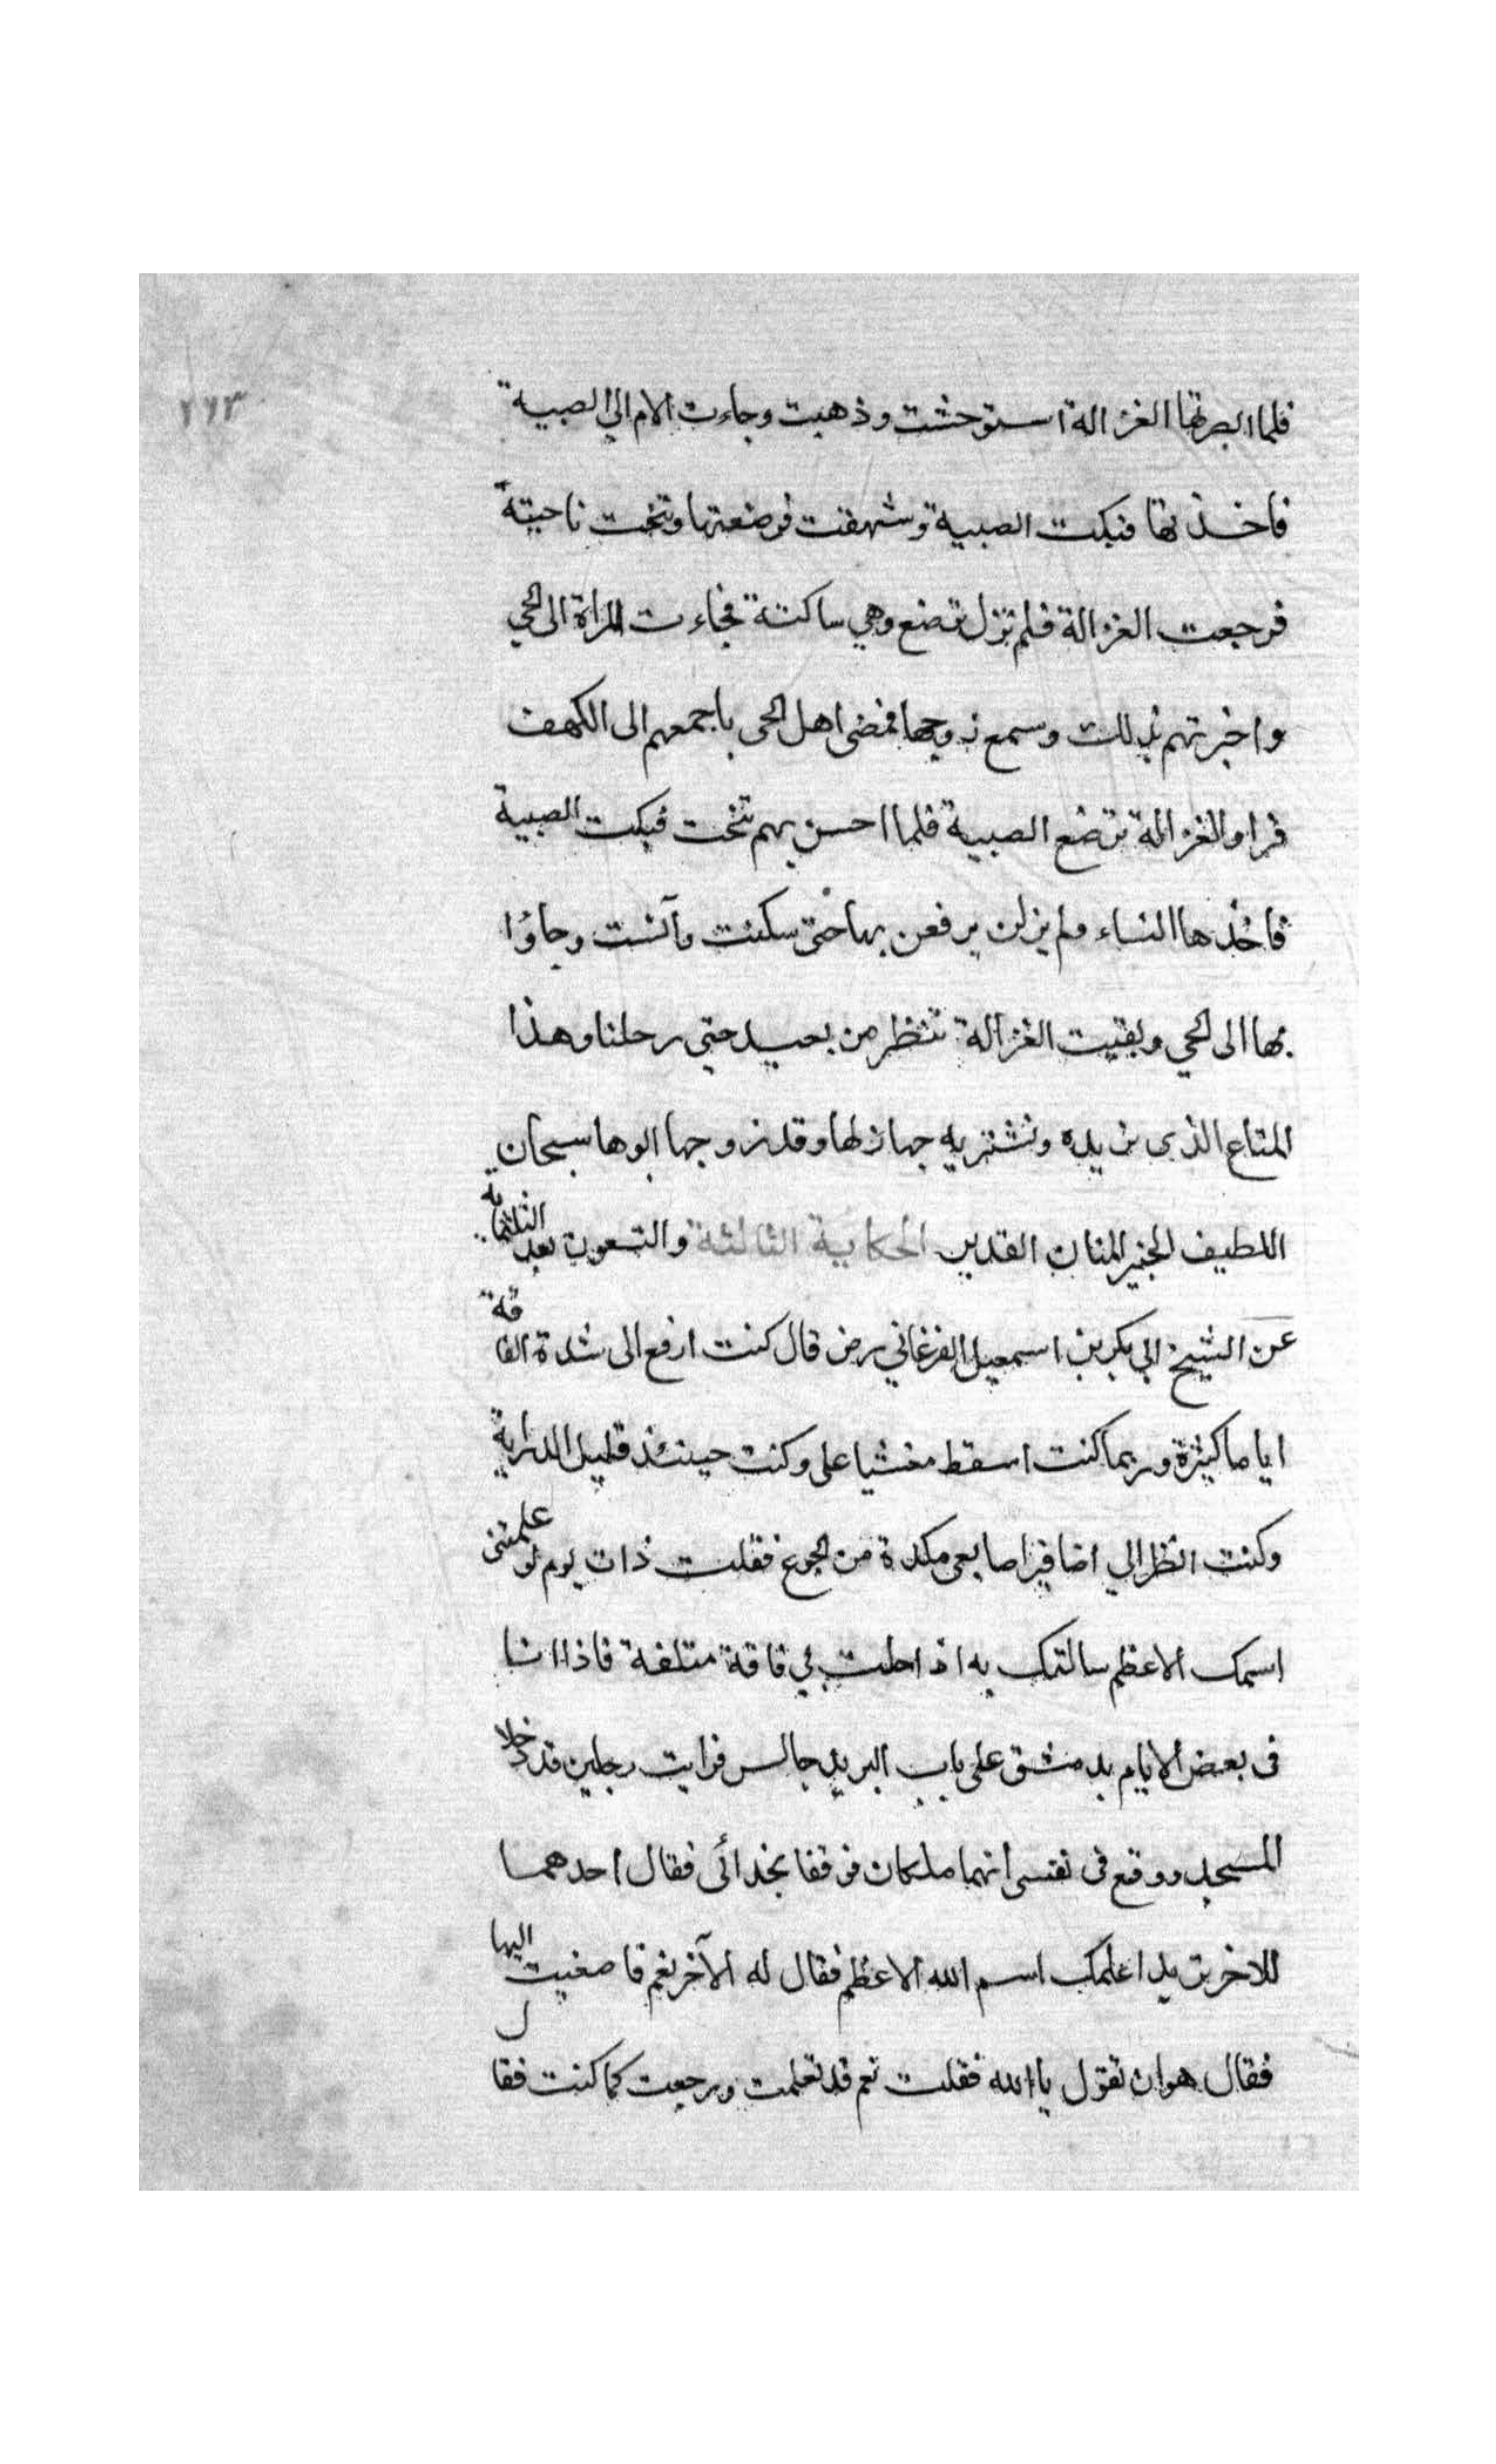 ٢٦٣
فلما ابصرتها الغزالة استوحشت وذهبت وجاءت الام الى الصبية
فاخذتها فبكت الصبية وشهقت فوضعتها وتنحت ناحية
فرجعت الغزالة فلم تزل ترضع وهي ساكتة فجاءت المراة الى الحي
واخبرتهم بذلك وسمع زوجها فمضى اهل الحى باجمعهم الى الكهف
فراوا الغزالة ترضع الصبية فلما احسن بهم تنحت فبكت الصبية
فاخذها النساء ولم يزلن يرفعن بها حتى سكنت وآنست وجاؤا
بها الى الحي وبقيت الغزالة تنظر من بعيد حتى رحلنا وهذا
المتاع الذى نريده ونشتريه جهازلها وقد زوجها ابوها سبحان
اللطيف الخبير المنان القدير الحكاية الثالثة والتسعون بعد الثلثماية
عن الشيخ ابي بكر بن اسمعيل الفرغاني رض قال كنت ارفع الى شدة الفاقة
اياما كثيرة وربما كنت اسقط مغشيا على وكنت حينئذ قليل الدراية
وكنت انظر الي اضافير اصابعى مكدة من الجوع فقلت ذات يوم لو علمتنى
اسمك الاعظم سالتك به اذا حلت بي فاقة متلفة فاذا انا
فى بعض الايام بدمشق على باب البريد جالس فرايت رجلين قد دخلا
المسجد ووقع فى نفسى انهما ملكان فوقفا بخدائى فقال احدهما
للاخر تريد اعلمك اسم الله الاعظم فقال له الآخر نعم فاصغيت اليها
فقال هو ان تقول ياالله فقلت نعم قد تعلمت ورجعت كما كنت فقال